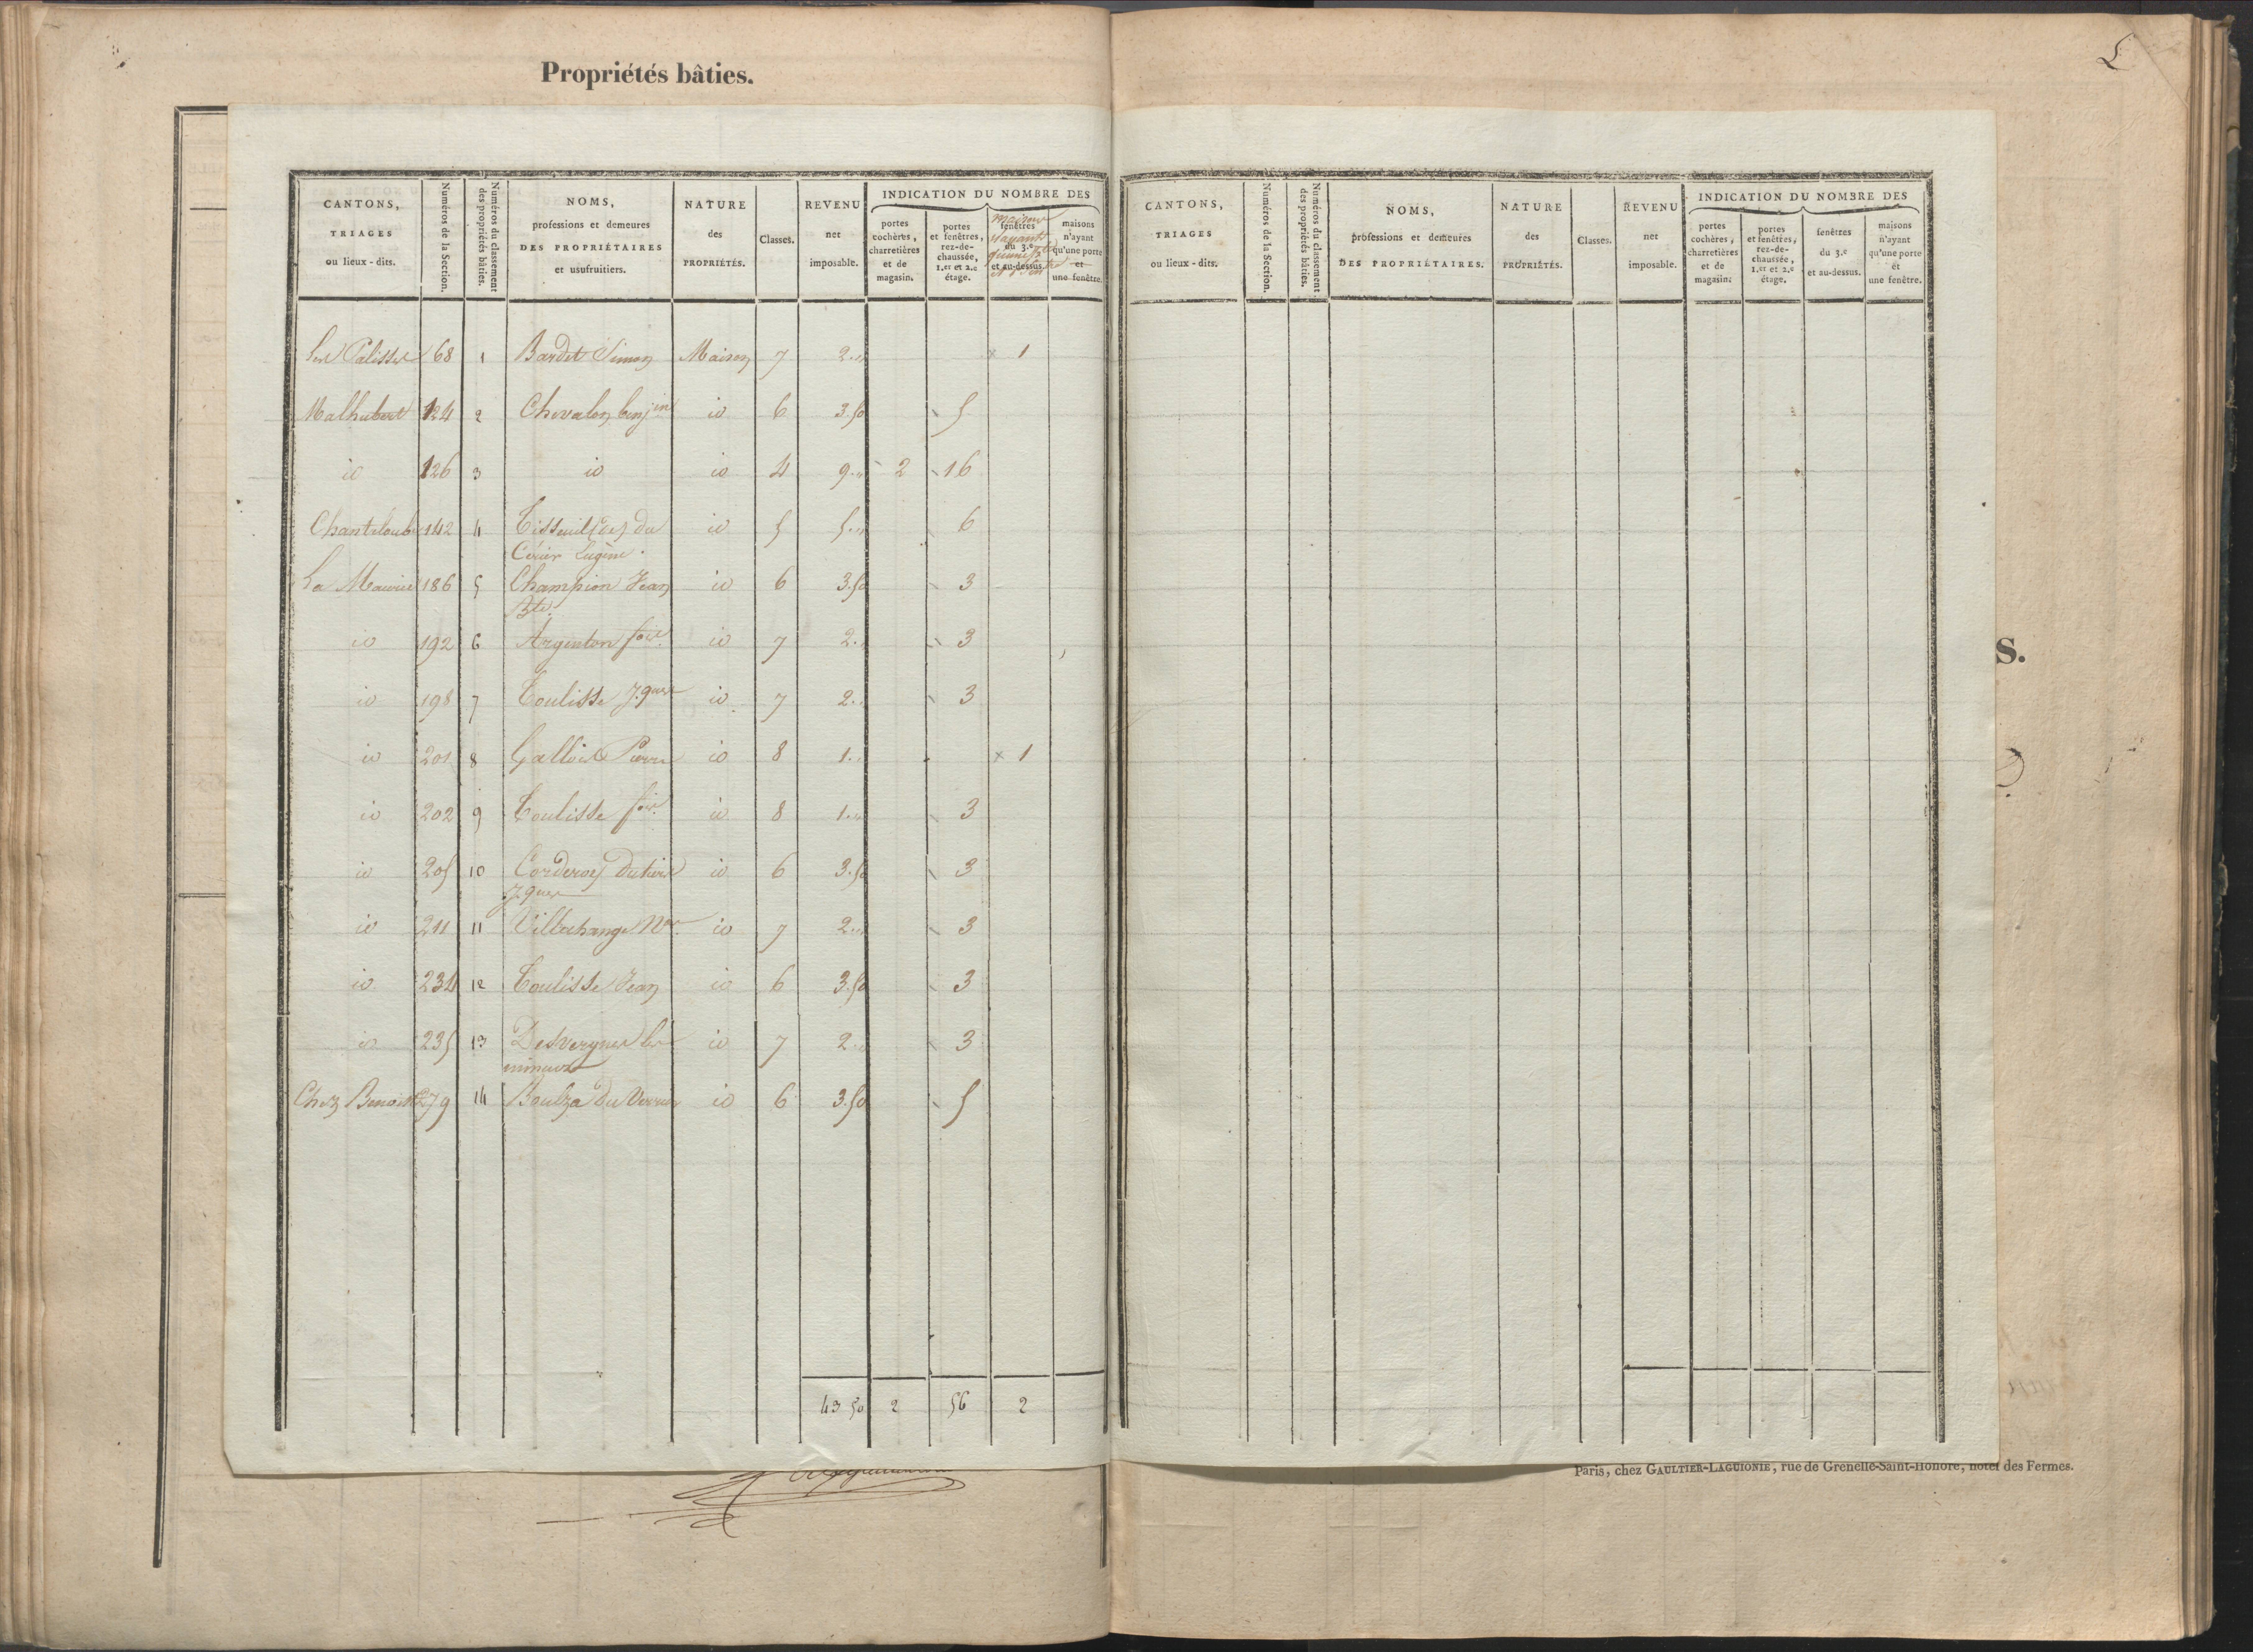 Propriétés bâties.
5
CANTONS,
TRIAGES
ou lieux-dits.
Numéros de la Section.
Numéros du classement
des propriétés bâties.
NOMS,
professions et demeures
DES PROPRIÉTAIRES
et usufruitiers.
NATURE
des
PROPRIÉTÉS.
Classes.
REVENU
net
imposable.
INDICATION DU NOMBRE DES
portes
cochères,
charretières
et de
magasin.
portes
et fenêtres,
rez-de-
chaussée,
1.er et 2.e
étage.
fenêtres
du 3.e
et au-dessus.
maisons
n'ayant
qu'une porte
et
une fenêtre.
Les Palisses 68 1 Bardet Simon Maison 7 2.,,
Malhubert 124 2 Chevalon benjin id 6 3.50 5
id 126 3 id id 4 9.,, 2 16
Chanteloube 142 4 Tisseuil du id 5 5.,, 6
Cerier Eugène.
La Maurie 186 5 Champion Jean id 6 3.50 3
Bte.
id 192 6 Arginton fois id 7 2.,, 3
id 198 7 Toulisse Jques id 7 2.,, 3
id 201 8 Gallois Pierre id 8 1.,, 1
id 202 9 Toulisse fois id 8 1.,, 3
id 205 10 Corderoy id 6 3.50 3
Jques
id 211 11 Villechange id 7 2.,, 3
id 234 12 Toulisse Jean id 6 3.50 3
id 235 13 Desvergnes les id 7 2.,, 3
mineurs
Chez Benoist 279 14 Boulza du Verrier id 6 3.50 5
43 50 2 56 2
CANTONS,
TRIAGES
ou lieux-dits.
Numéros de la Section.
Numéros du classement
des propriétés bâties.
NOMS,
professions et demeures
DES PROPRIÉTAIRES.
NATURE
des
PROPRIÉTÉS.
Classes.
REVENU
net
imposable.
INDICATION DU NOMBRE DES
portes
cochères,
charretières
et de
magasin.
portes
et fenêtres,
rez-de-
chaussée,
1.er et 2.e
étage.
fenêtres
du 3.e
et au-dessus.
maisons
n'ayant
qu'une porte
et
une fenêtre.
S.
Paris, chez GAULTIER-LAGUIONIE, rue de Grenelle-Saint-Honoré, hôtel des Fermes.